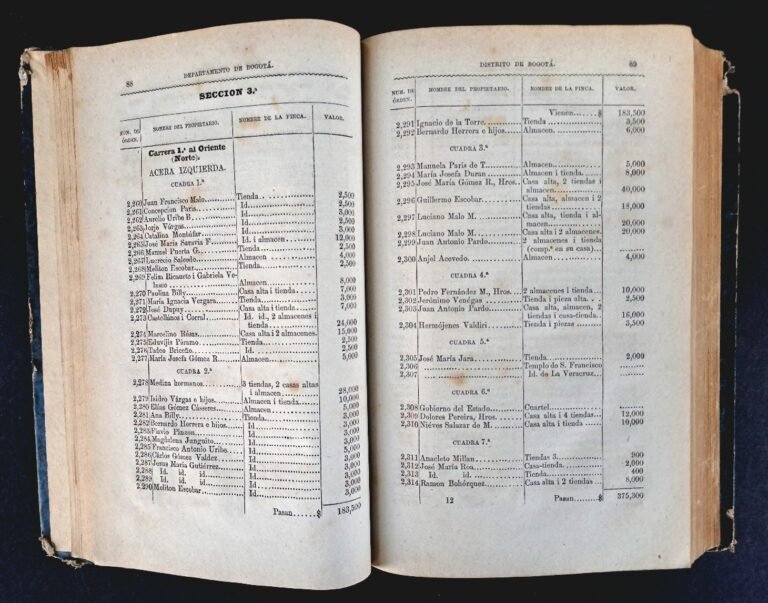 88
DEPARTAMENTO DE BOGOTÁ.
SECCION 3.ª
NUM. DE ÓRDEN. NOMBRE DEL PROPIETARIO. NOMBRE DE LA FINCA. VALOR.
Carrera 1.ª al Oriente
(Norte).
ACERA IZQUIERDA.
CUADRA 1.ª
2,260 Juan Francisco Malo Tienda 2,500
2,261 Concepcion Paris Id. 2,500
2,262 Aurelio Uribe B Id. 3,000
2,263 Jorje Várgas Id. 2,500
2,264 Catalina Montúfar Id. 3,000
2,265 José María Saravia F. Id. i almacen 12,000
2,266 Manuel Puerta G. Tienda 2,500
2,267 Lucrecio Salcedo Almacen 4,000
2,268 Meliton Escobar Tienda 2,500
2,269 Felisa Ricaurte i Gabriela Ve-
lasco Almacen 8,000
2,270 Paulina Billy Casa alta i tienda 7,000
2,271 María Ignacia Vergara Tienda 3,000
2,272 José Dupuy Casa alta i tienda 7,000
2,273 Castellános i Corral Id. id., 2 almacenes i
tienda 24,000
2,274 Marcelino Rósas Casa alta i 2 almacenes. 15,000
2,275 Eduvijis Páramo Tienda 2,500
2,276 Tadeo Briceño Id. 2,500
2,277 María Josefa Gómez R. Almacen 5,000
CUADRA 2.ª
2,278 Medina hermanos 3 tiendas, 2 casas altas
i almacen 28,000
2,279 Isidro Várgas e hijos Almacen i tienda 10,000
2,280 Elías Gómez Cásseres Almacen 5,000
2,281 Ana Billy Tienda 3,000
2,282 Bernardo Herrera e hijos Id. 3,000
2,283 Flavio Pinzon Id. 3,000
2,284 Magdalena Junguito Id. 3,000
2,285 Francisco Antonio Uribe Id. 5,000
2,286 Cárlos Gómez Valdez Id. 3,000
2,287 Jesus María Gutiérrez Id. 3,000
2,288 Id. id. id. Id. 3,000
2,289 Id. id. id. Id. 3,000
2,290 Meliton Escobar Id. 3,000
Pasan $ 183,500
DISTRITO DE BOGOTÁ.
89
NUM. DE ÓRDEN. NOMBRE DEL PROPIETARIO. NOMBRE DE LA FINCA. VALOR.
Vienen $ 183,500
2,291 Ignacio de la Torre Tienda 3,500
2,292 Bernardo Herrera e hijos Almacen 6,000
CUADRA 3.ª
2,293 Manuela Paris de T. Almacen 5,000
2,294 María Josefa Duran Almacen i tienda 8,000
2,295 José María Gómez R., Hros. Casa alta, 2 tiendas i
almacen 40,000
2,296 Guillermo Escobar Casa alta, almacen i 2
tiendas 18,000
2,297 Luciano Malo M. Casa alta, tienda i al-
macen 20,000
2,298 Luciano Malo M. Casa alta i 2 almacenes. 20,000
2,299 Juan Antonio Pardo 2 almacenes i tienda
(comp.ª en su casa)
2,300 Anjel Acevedo Almacen 4,000
CUADRA 4.ª
2,301 Pedro Fernández M., Hros. 2 almacenes i tienda 10,000
2,302 Jerónimo Venégas Tienda i pieza alta. 2,500
2,303 Juan Antonio Pardo Casa alta, almacen, 2
tiendas i casa-tienda. 16,000
2,304 Hermójenes Valdiri Tienda i piezas 3,500
CUADRA 5.ª
2,305 José María Jara Tienda 2,000
2,306 Templo de S. Francisco
2,307 Id. de La Veracruz
CUADRA 6.ª
2,308 Gobierno del Estado Cuartel
2,309 Dolores Pereira, Hros. Casa alta i 4 tiendas 12,000
2,310 Niéves Salazar de M. Casa alta i tienda 10,000
CUADRA 7.ª
2,311 Anacleto Millan Tiendas 3 900
2,312 José María Roa Casa-tienda 2,000
2,313 Id. id. Tienda 400
2,314 Ramon Bohórquez Casa alta i 2 tiendas 8,000
12 Pasan $ 375,300